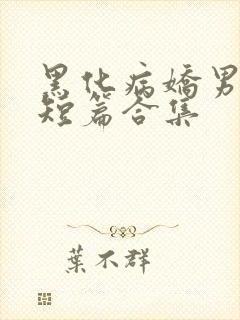 黑化病嬌男
短篇合集
葉不群